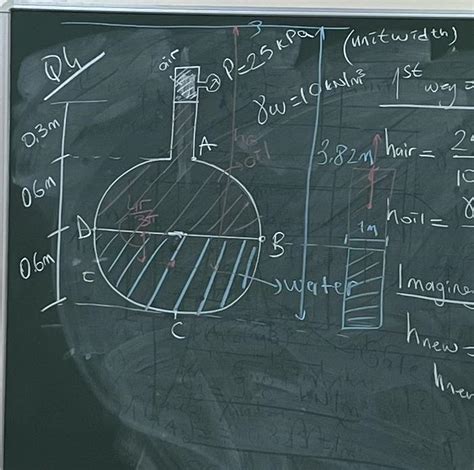 Q4
air
P=25kPa
(unit width)
γw=10kN/m³
1st way =
0.3m
A
oil
3.82m
hair = 2
10
0.6m
hoil =
1m
D
B
0.6m
E
water
Imagine
C
hnew =
hnew